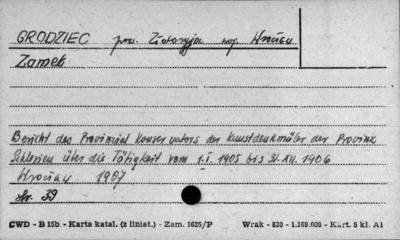 GRODZIEC pow. Złotoryja woj. Wrocław
Zamek
Bericht des Provinzial Konservators der Kunstdenkmäler der Provinz
Schlesien über die Tätigkeit vom 1.I. 1905 bis 31.XII. 1906
Wrocław 1907
Str. 39
CWD - B 15b - Karta katal. (z liniat.) - Zam. 1625/P Wrak - 630 - 1.160.000 - Kart. 5 kl. A1